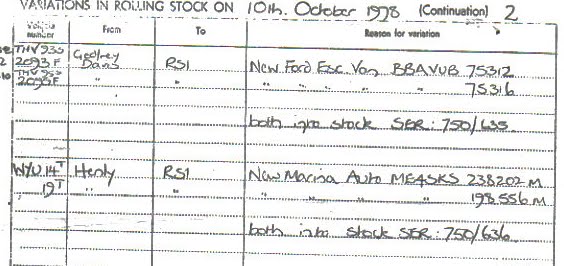 VARIATIONS IN ROLLING STOCK ON 10th. October 1978 (Continuation) 2
Vehicle number From To Reason for variation
2093F Godfrey Davis RS1 New Ford Esc. Van BBAVUB 75312
" " " " " " 75316
both into stock SER: 750/635
WYU 14T Henly RS1 New Marina Auto ME4SKS 238202 M
19T " " " " " 198556 M
both into stock SER: 750/636